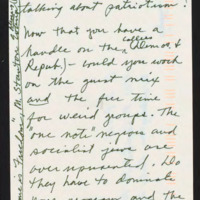 talking about patriotism!
Now that you have a
handle on the callers (Demos &
Repub) - could you work
on the guest mix
and the free time
for weird groups. The
"one note" negroes and
socialist jews are
over represented. Do
they have to dominate
program and the